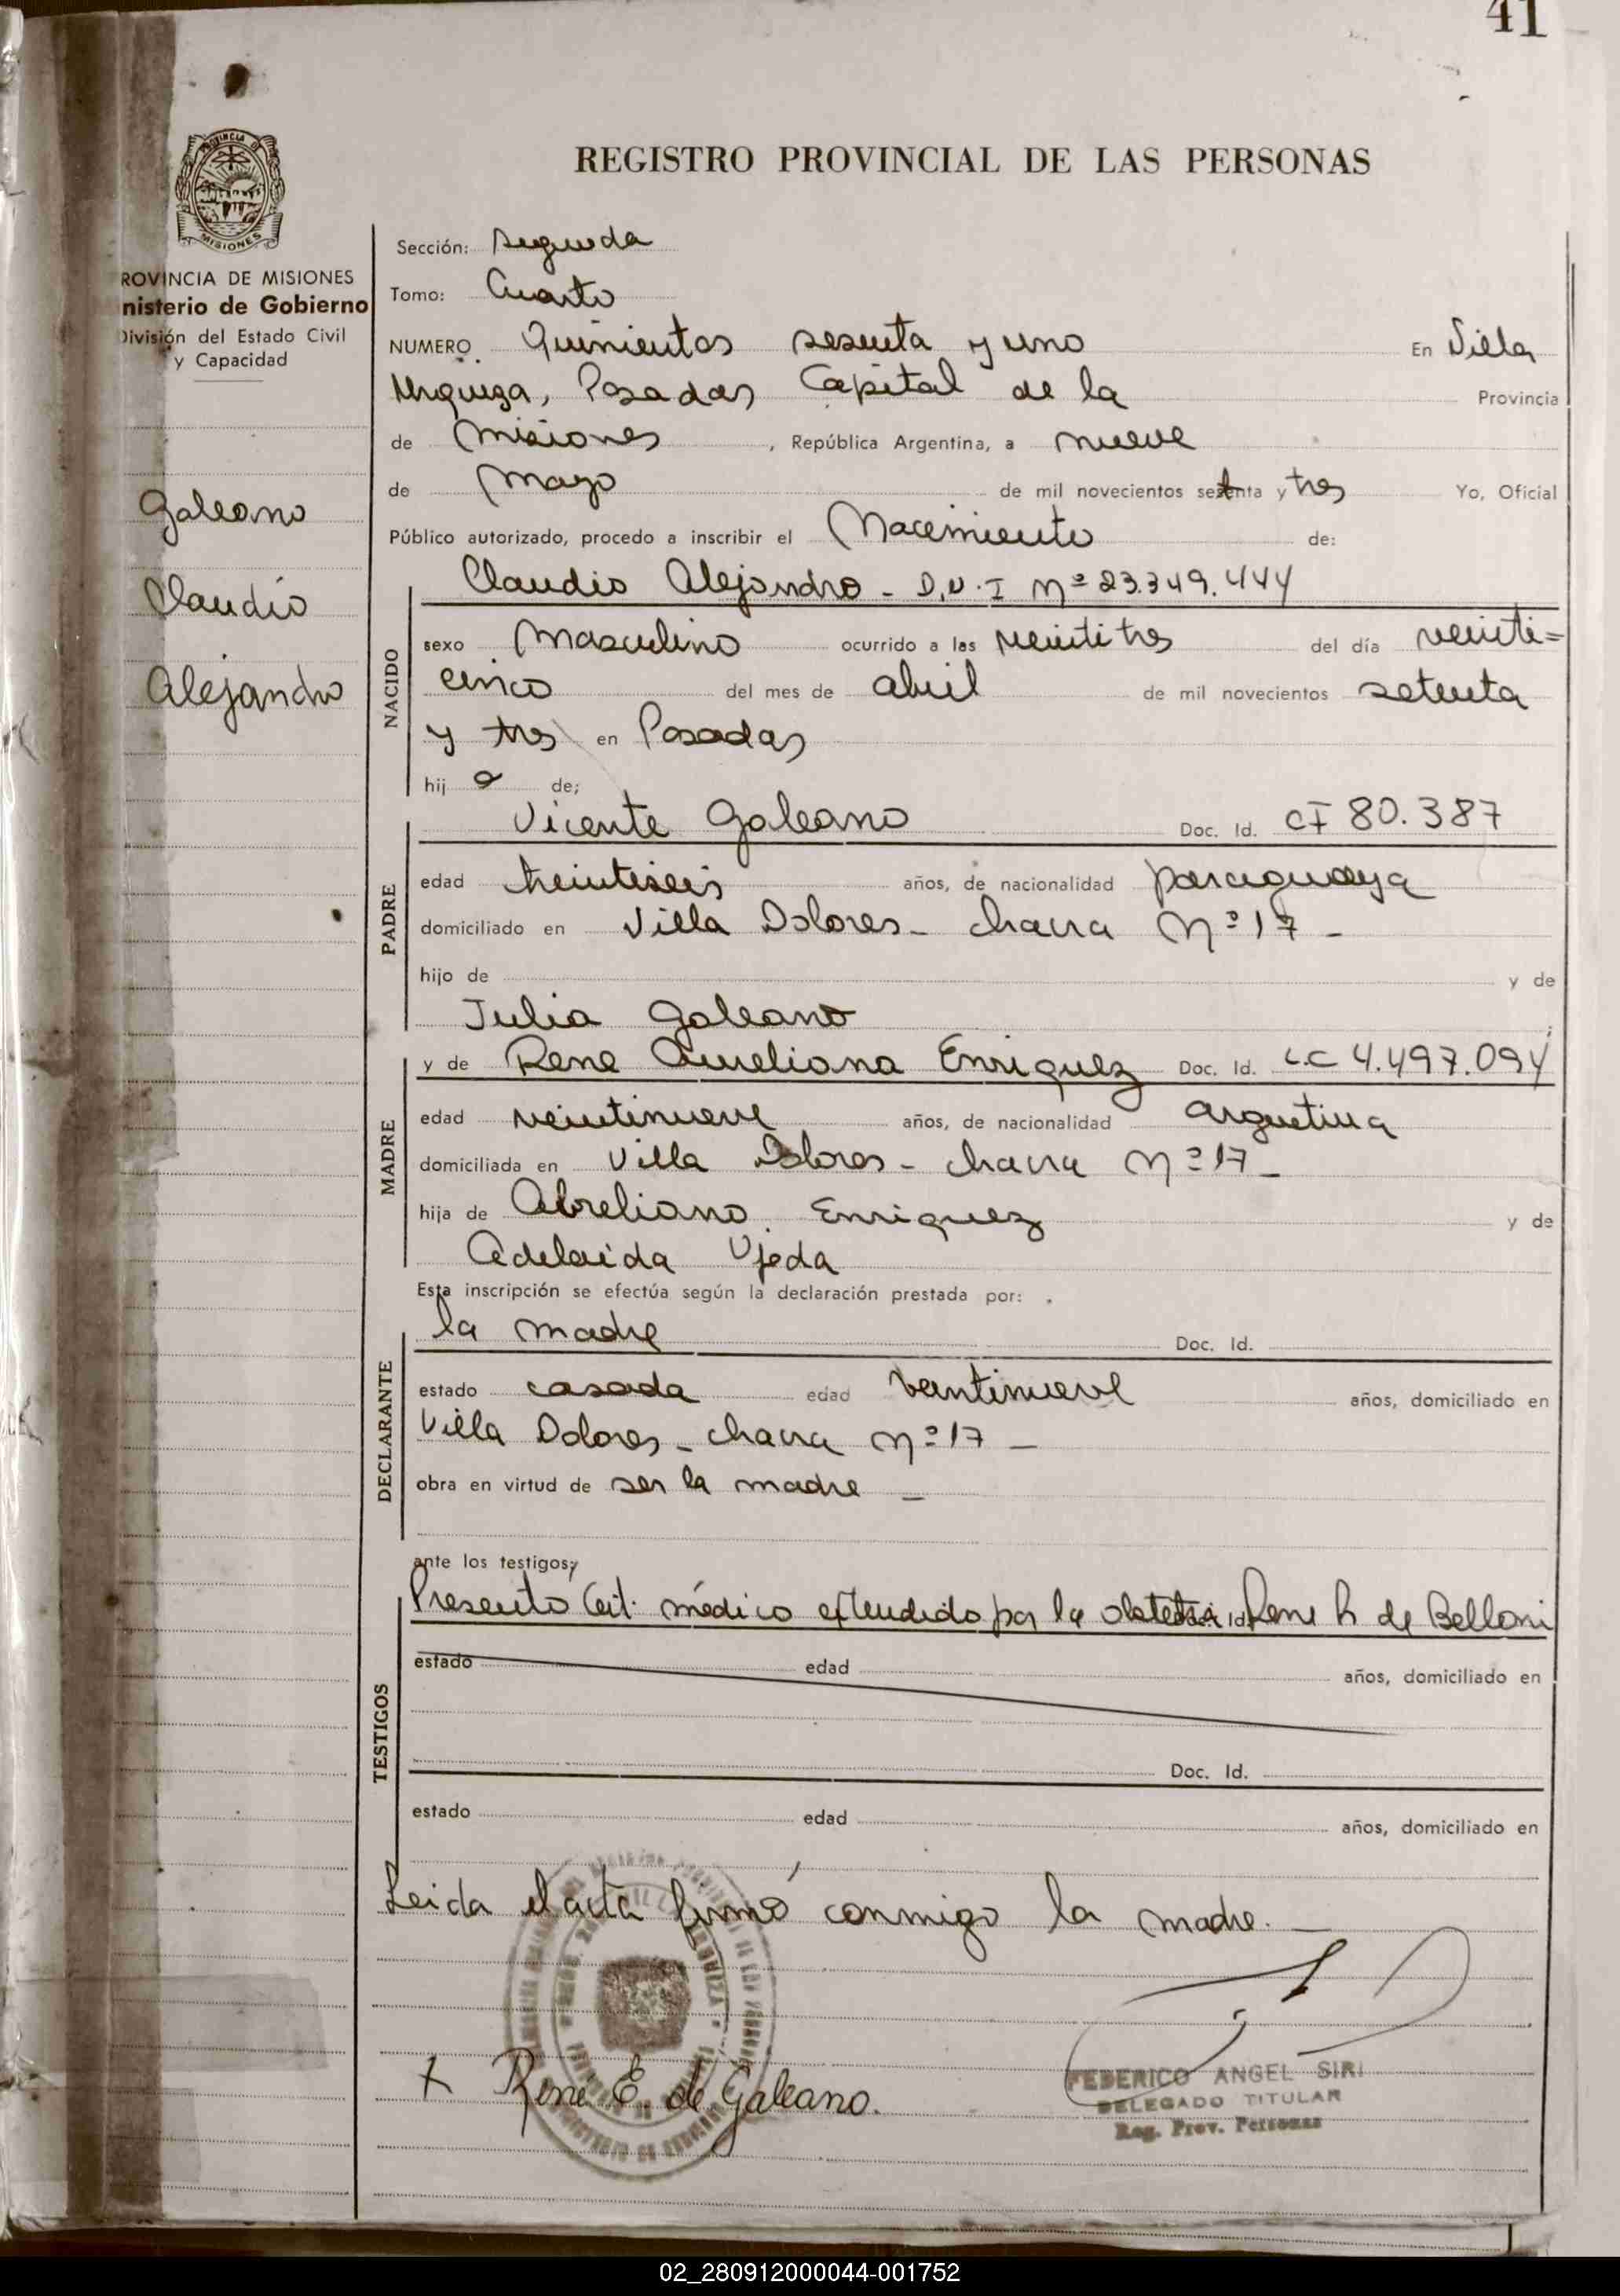 41
REGISTRO PROVINCIAL DE LAS PERSONAS
MISIONES
ROVINCIA DE MISIONES
nisterio de Gobierno
División del Estado Civil
y Capacidad
Galeano
Claudio
Alejandro
Sección: segunda
Tomo: Cuarto
NUMERO. Quinientos sesenta y uno En Villa
Urquiza, Posadas Capital de la Provincia
de Misiones, República Argentina, a nueve
de Mayo de mil novecientos setenta y tres Yo, Oficial
Público autorizado, procedo a inscribir el Nacimiento de:
Claudio Alejandro - D.N.I Nº 23.349.444
NACIDO
sexo Masculino ocurrido a las veintitres del día veinti=
cinco del mes de abril de mil novecientos setenta
y tres en Posadas
hij o de;
PADRE
Vicente Galeano Doc. Id. CI 80.387
edad treintiseis años, de nacionalidad paraguaya
domiciliado en Villa Dolores - chacra Nº 17 -
hijo de y de
Julia Galeano
MADRE
y de Rene Aureliana Enriquez Doc. Id. L.C 4.497.094
edad veintinueve años, de nacionalidad argentina
domiciliada en Villa Dolores - chacra Nº 17 -
hija de Abreliano Enriquez y de
Adelaida Ojeda
Esta inscripción se efectúa según la declaración prestada por:
DECLARANTE
la madre Doc. Id.
estado casada edad veintinueve años, domiciliado en
Villa Dolores - chacra Nº 17 -
obra en virtud de ser la madre -
ante los testigos;
TESTIGOS
Presento Cert. médico extendido por la obstetra Rene R de Belloni
estado edad años, domiciliado en
Doc. Id.
estado edad años, domiciliado en
Leida el acta firmó conmigo la madre. -
x René E. de Galeano.
FEDERICO ANGEL SIRI
DELEGADO TITULAR
Reg. Prov. Personas
02_280912000044-001752